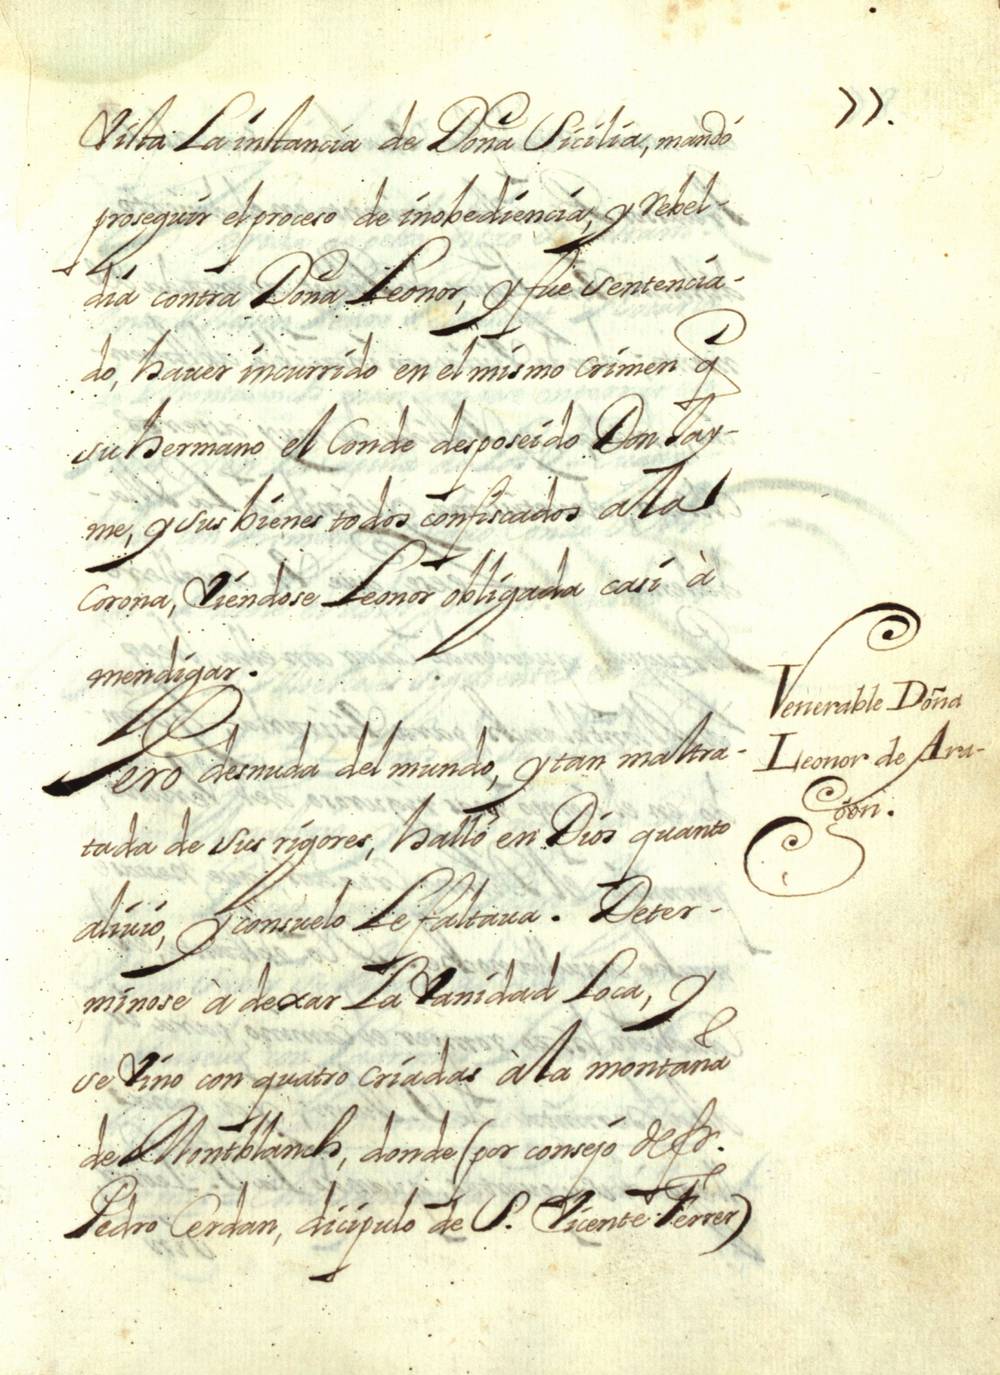 77.
Vista La instancia de Doña Sicilia, mandó
proseguir el proceso de inobediencia, y rebel-
dia contra Doña Leonor, y fue sentencia-
do, hauer incurrido en el mismo crimen q̃
su hermano el Conde desposeido Don Jay-
me, y sus bienes todos confiscados a la
Corona, Viendose Leonor obligada casi à
mendigar.
Pero desnuda del mundo, y tan maltra-
tada de sus rigores, hallò en Dios quanto
aliuio, y consuelo Le faltaua. Deter-
minose à dexar La Vanidad Loca, y
se Vino con quatro criadas à la montaña
de Montblanch, donde (por consejo de fr.
Pedro Cerdan, dicipulo de S. Vicente Ferrer)
Venerable Doña
Leonor de Ara-
gon.